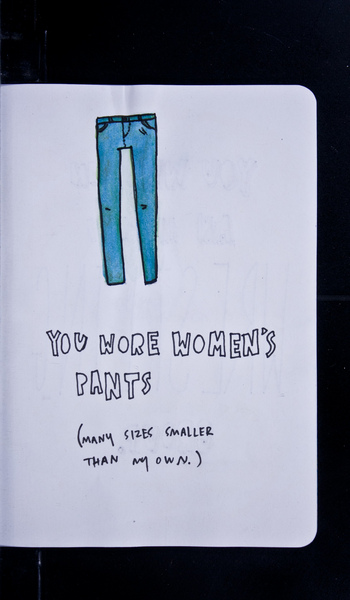 YOU WORE WOMEN'S
PANTS
(MANY SIZES SMALLER
THAN MY OWN.)